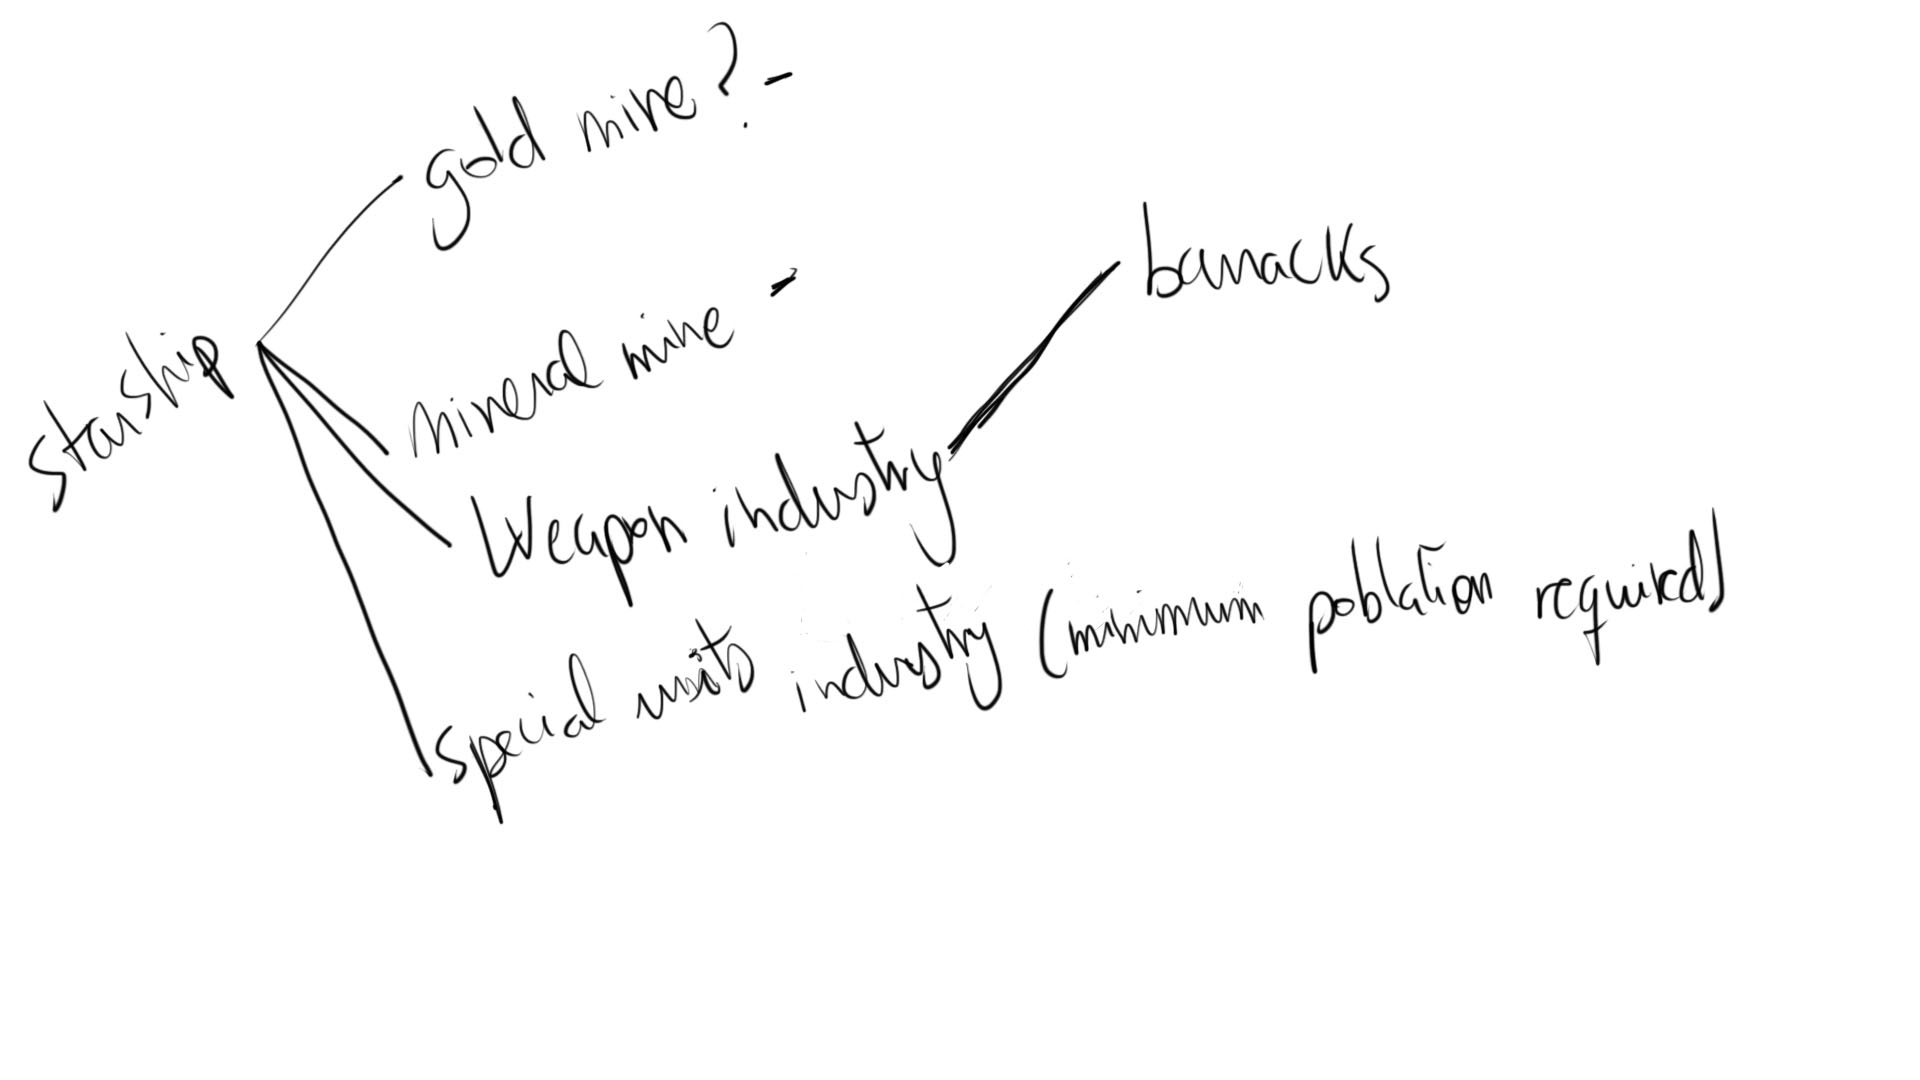 starship
gold mine? -
mineral mine -
Weapon industry
barracks
special units industry (minimum poblation required)